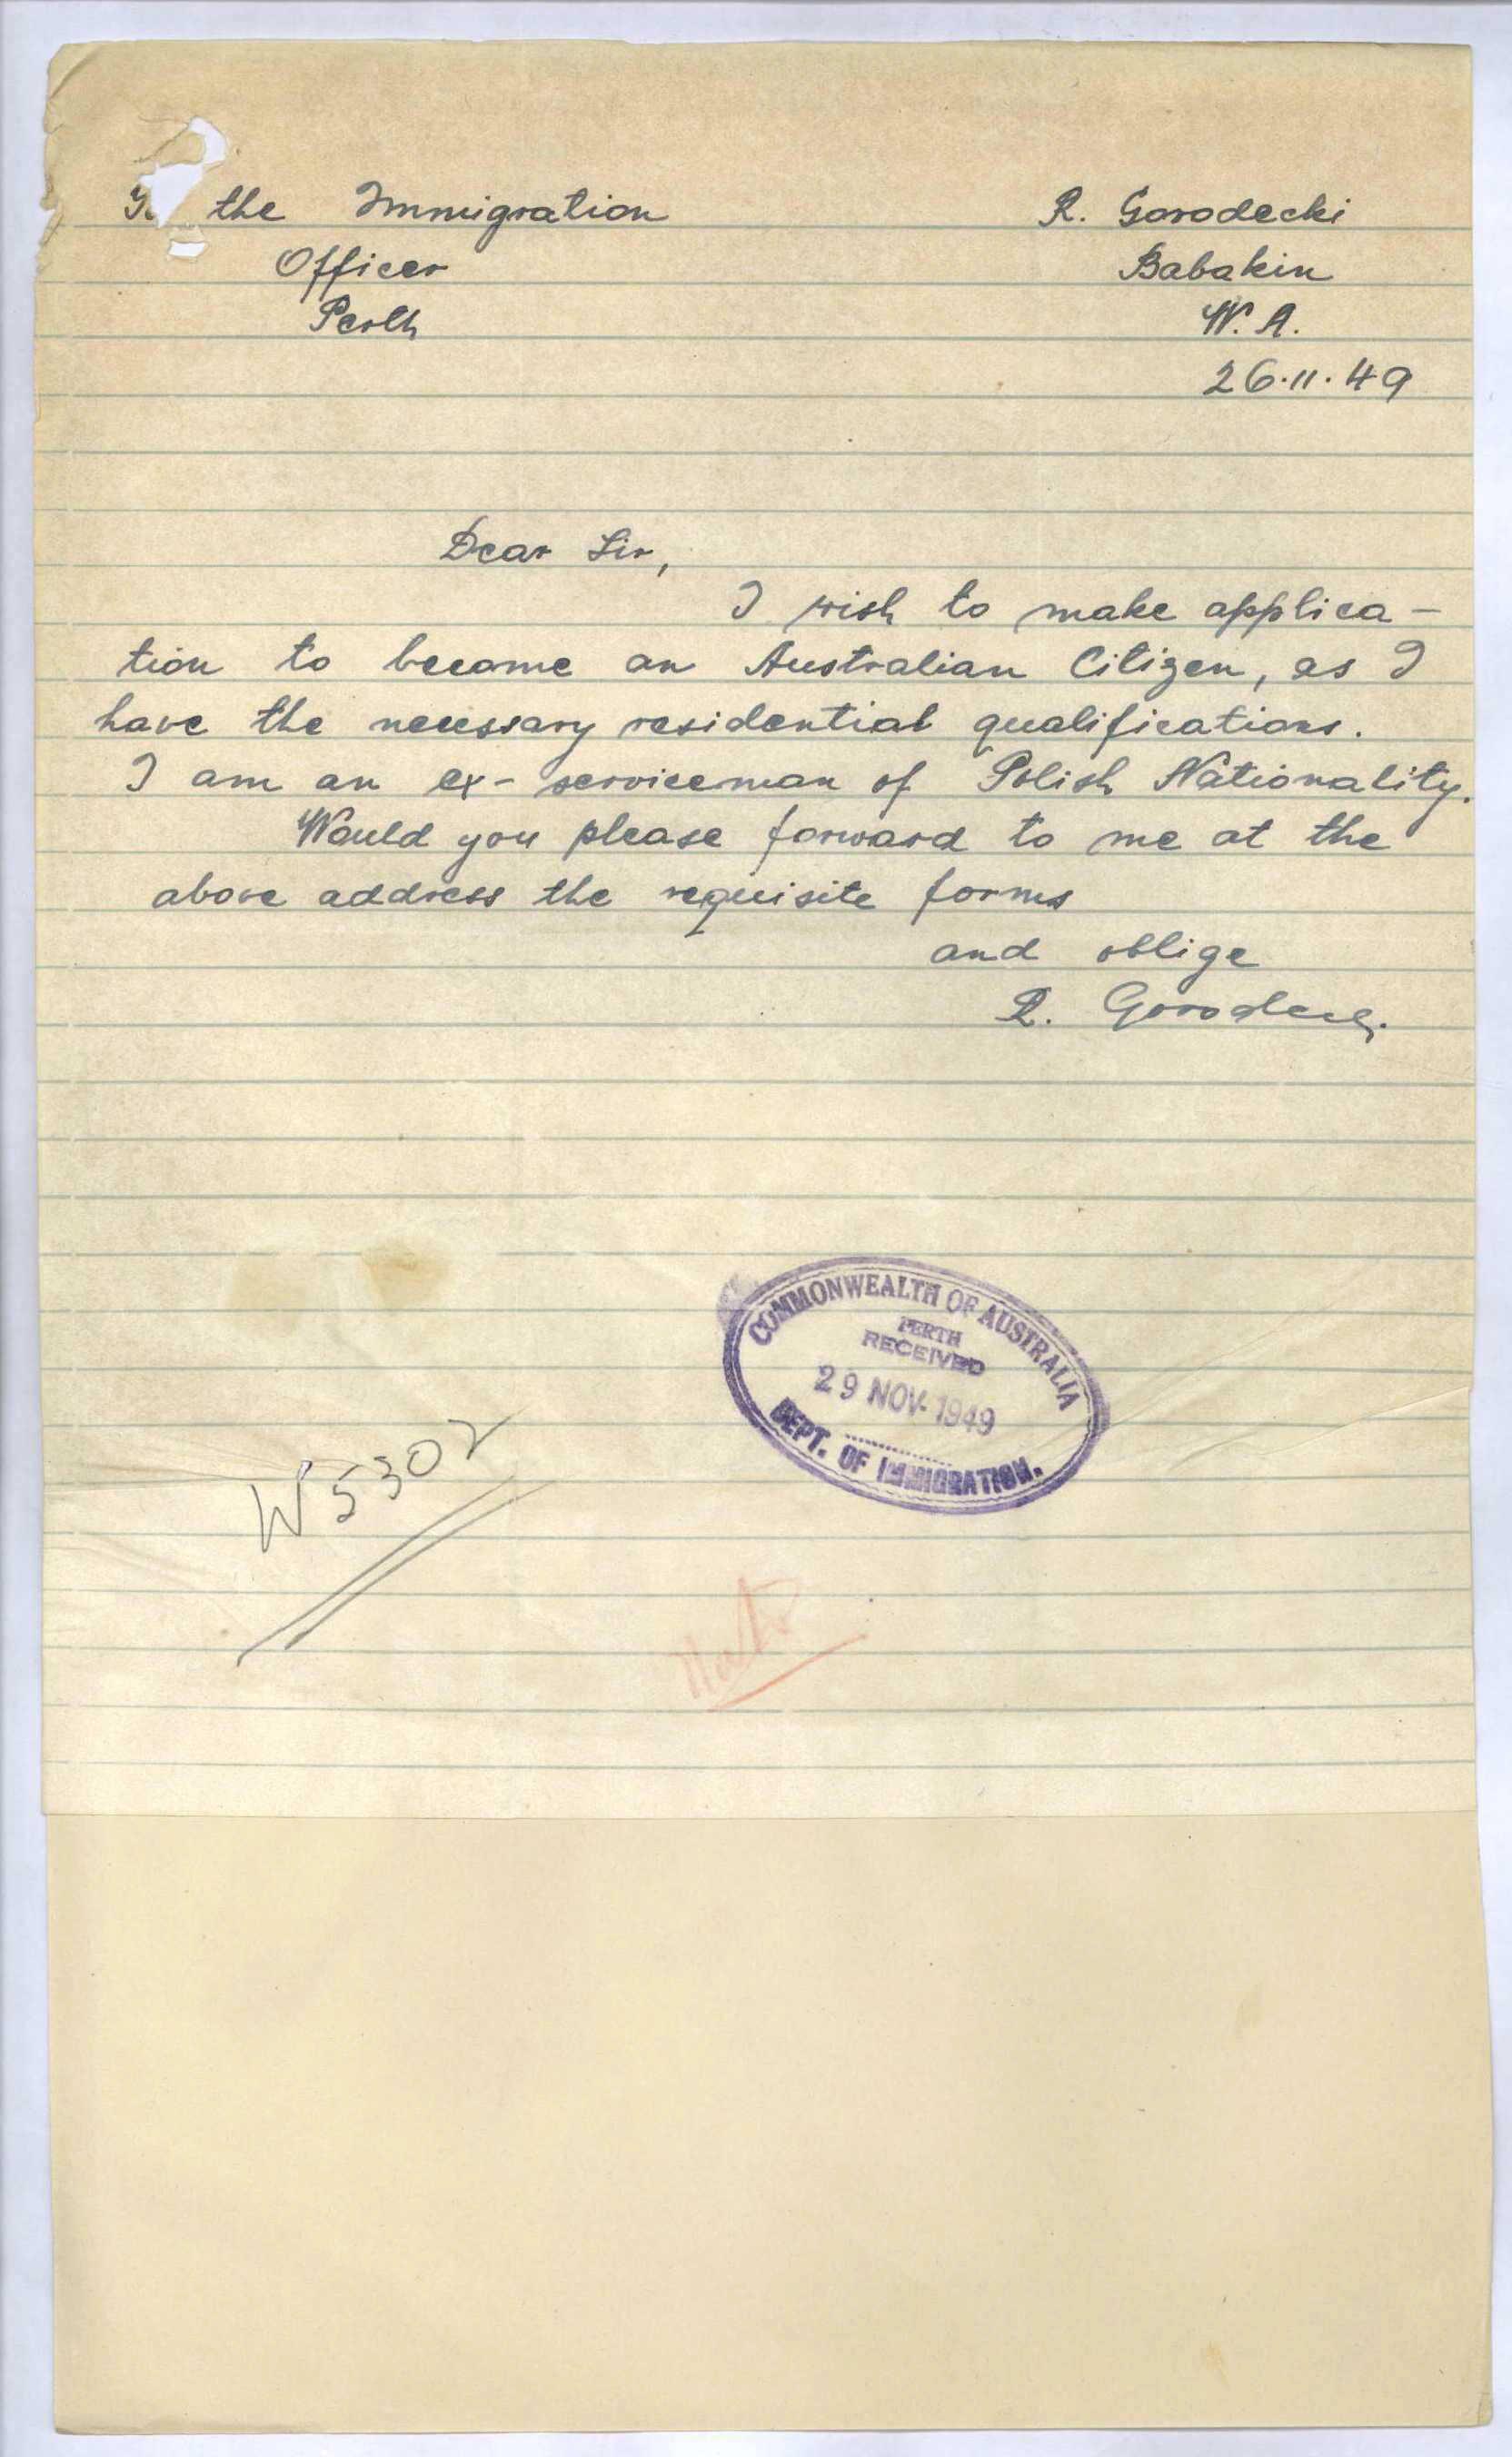 the Immigration
Officer
Perth
R. Gorodecki
Babakin
W. A.
26.11.49
Dear Sir,
I wish to make applica -
tion to become an Australian Citizen, as I
have the necessary residential qualifications.
I am an ex- serviceman of Polish Nationality.
Would you please forward to me at the
above address the requisite forms
and oblige
R. Gorodecki
COMMONWEALTH OF AUSTRALIA
PERTH
RECEIVED
29 NOV 1949
DEPT. OF IMMIGRATION.
W5302